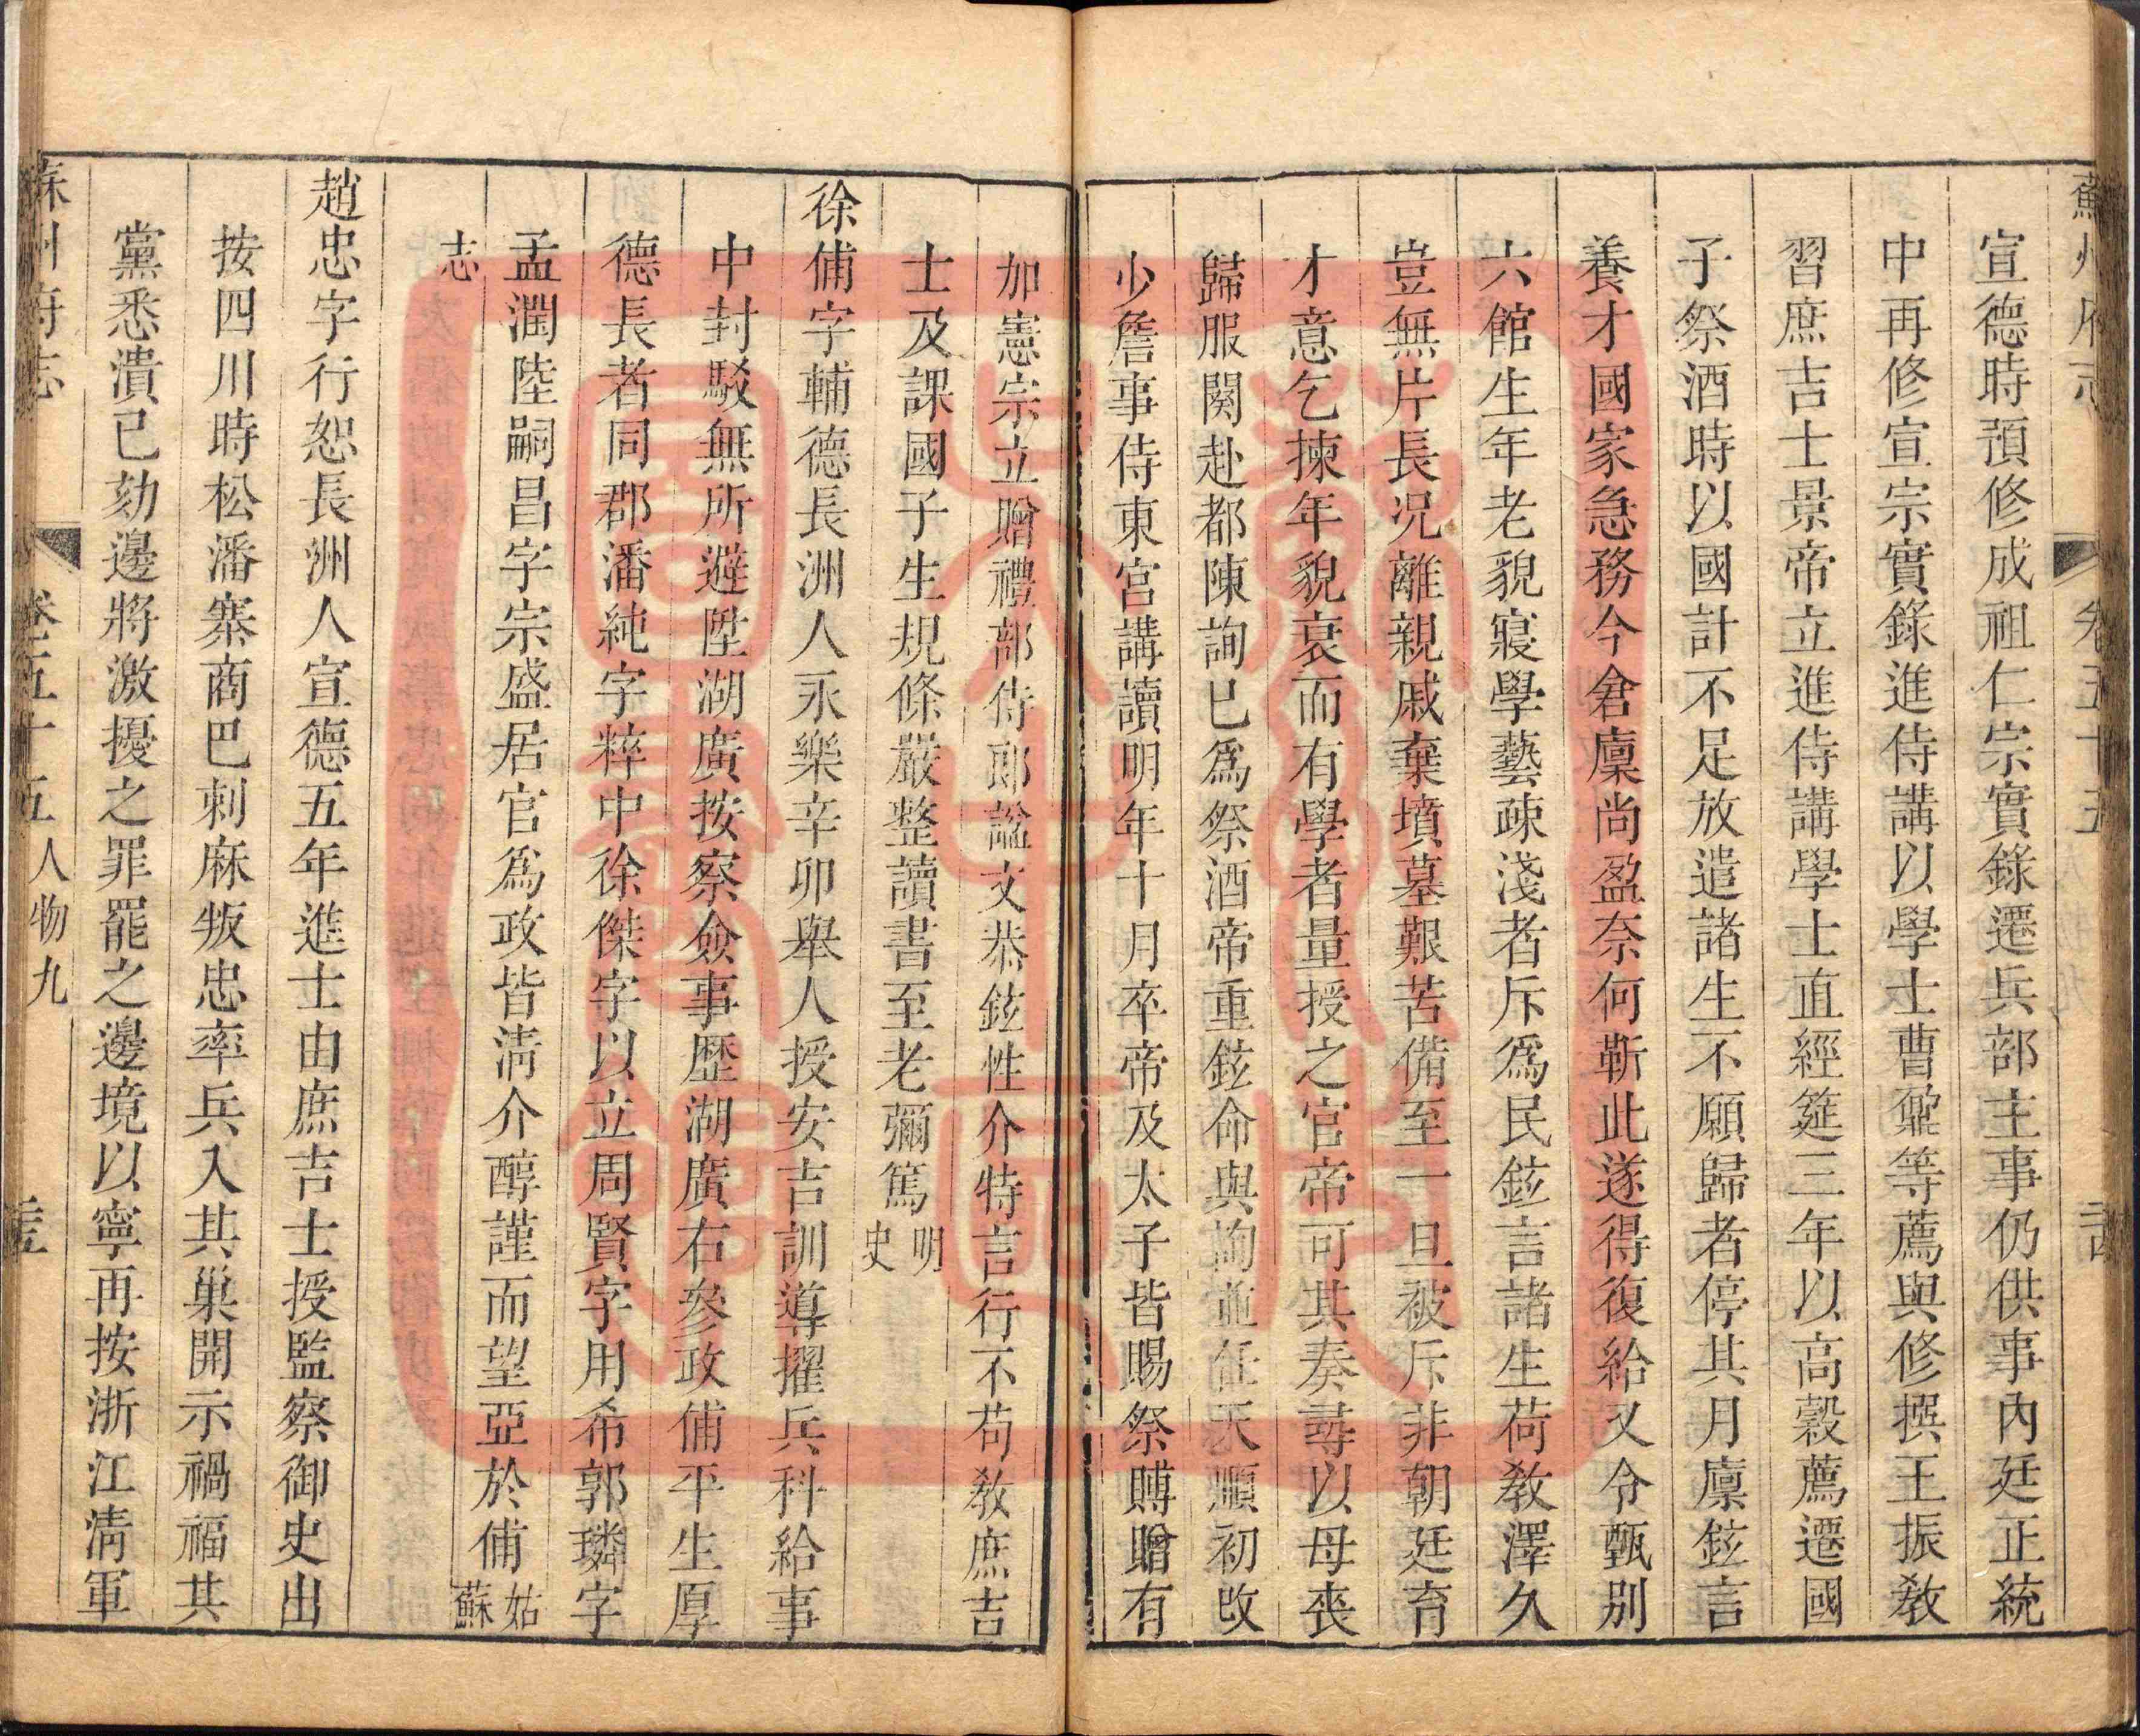 蘇州府志 卷五十五
宣德時預修成祖仁宗實錄遷兵部主事仍供事內廷正統
中再修宣宗實錄進侍講以學士曹鼐等薦與修撰王振教
習庶吉士景帝立進侍講學士直經筵三年以高穀薦遷國
子祭酒時以國計不足放遣諸生不願歸者停其月廩鉉言
養才國家急務今倉廩尚盈奈何靳此遂得復給又令甄別
六館生年老貌寢學藝疎淺者斥爲民鉉言諸生荷教澤久
豈無片長況離親戚棄墳墓艱苦備至一旦被斥非朝廷育
才意乞揀年貌衰而有學者量授之官帝可其奏尋以母喪
歸服闋赴都陳詢已爲祭酒帝重鉉命與詢並任天順初改
少詹事侍東宮講讀明年十月卒帝及太子皆賜祭賻贈有
加憲宗立贈禮部侍郎諡文恭鉉性介特言行不苟教庶吉
士及課國子生規條嚴整讀書至老彌篤明史
徐俌字輔德長洲人永樂辛卯舉人授安吉訓導擢兵科給事
中封駁無所避陞湖廣按察僉事歷湖廣右參政俌平生厚
德長者同郡潘純字粹中徐傑字以立周賢字用希郭璘字
孟潤陸嗣昌字宗盛居官爲政皆淸介醇謹而望亞於俌姑蘇
志
趙忠字行恕長洲人宣德五年進士由庶吉士授監察御史出
按四川時松潘寨商巴剌麻叛忠率兵入其巢開示禍福其
黨悉潰已劾邊將激擾之罪罷之邊境以寧再按浙江淸軍
蘇州府志 卷五十五 人物九